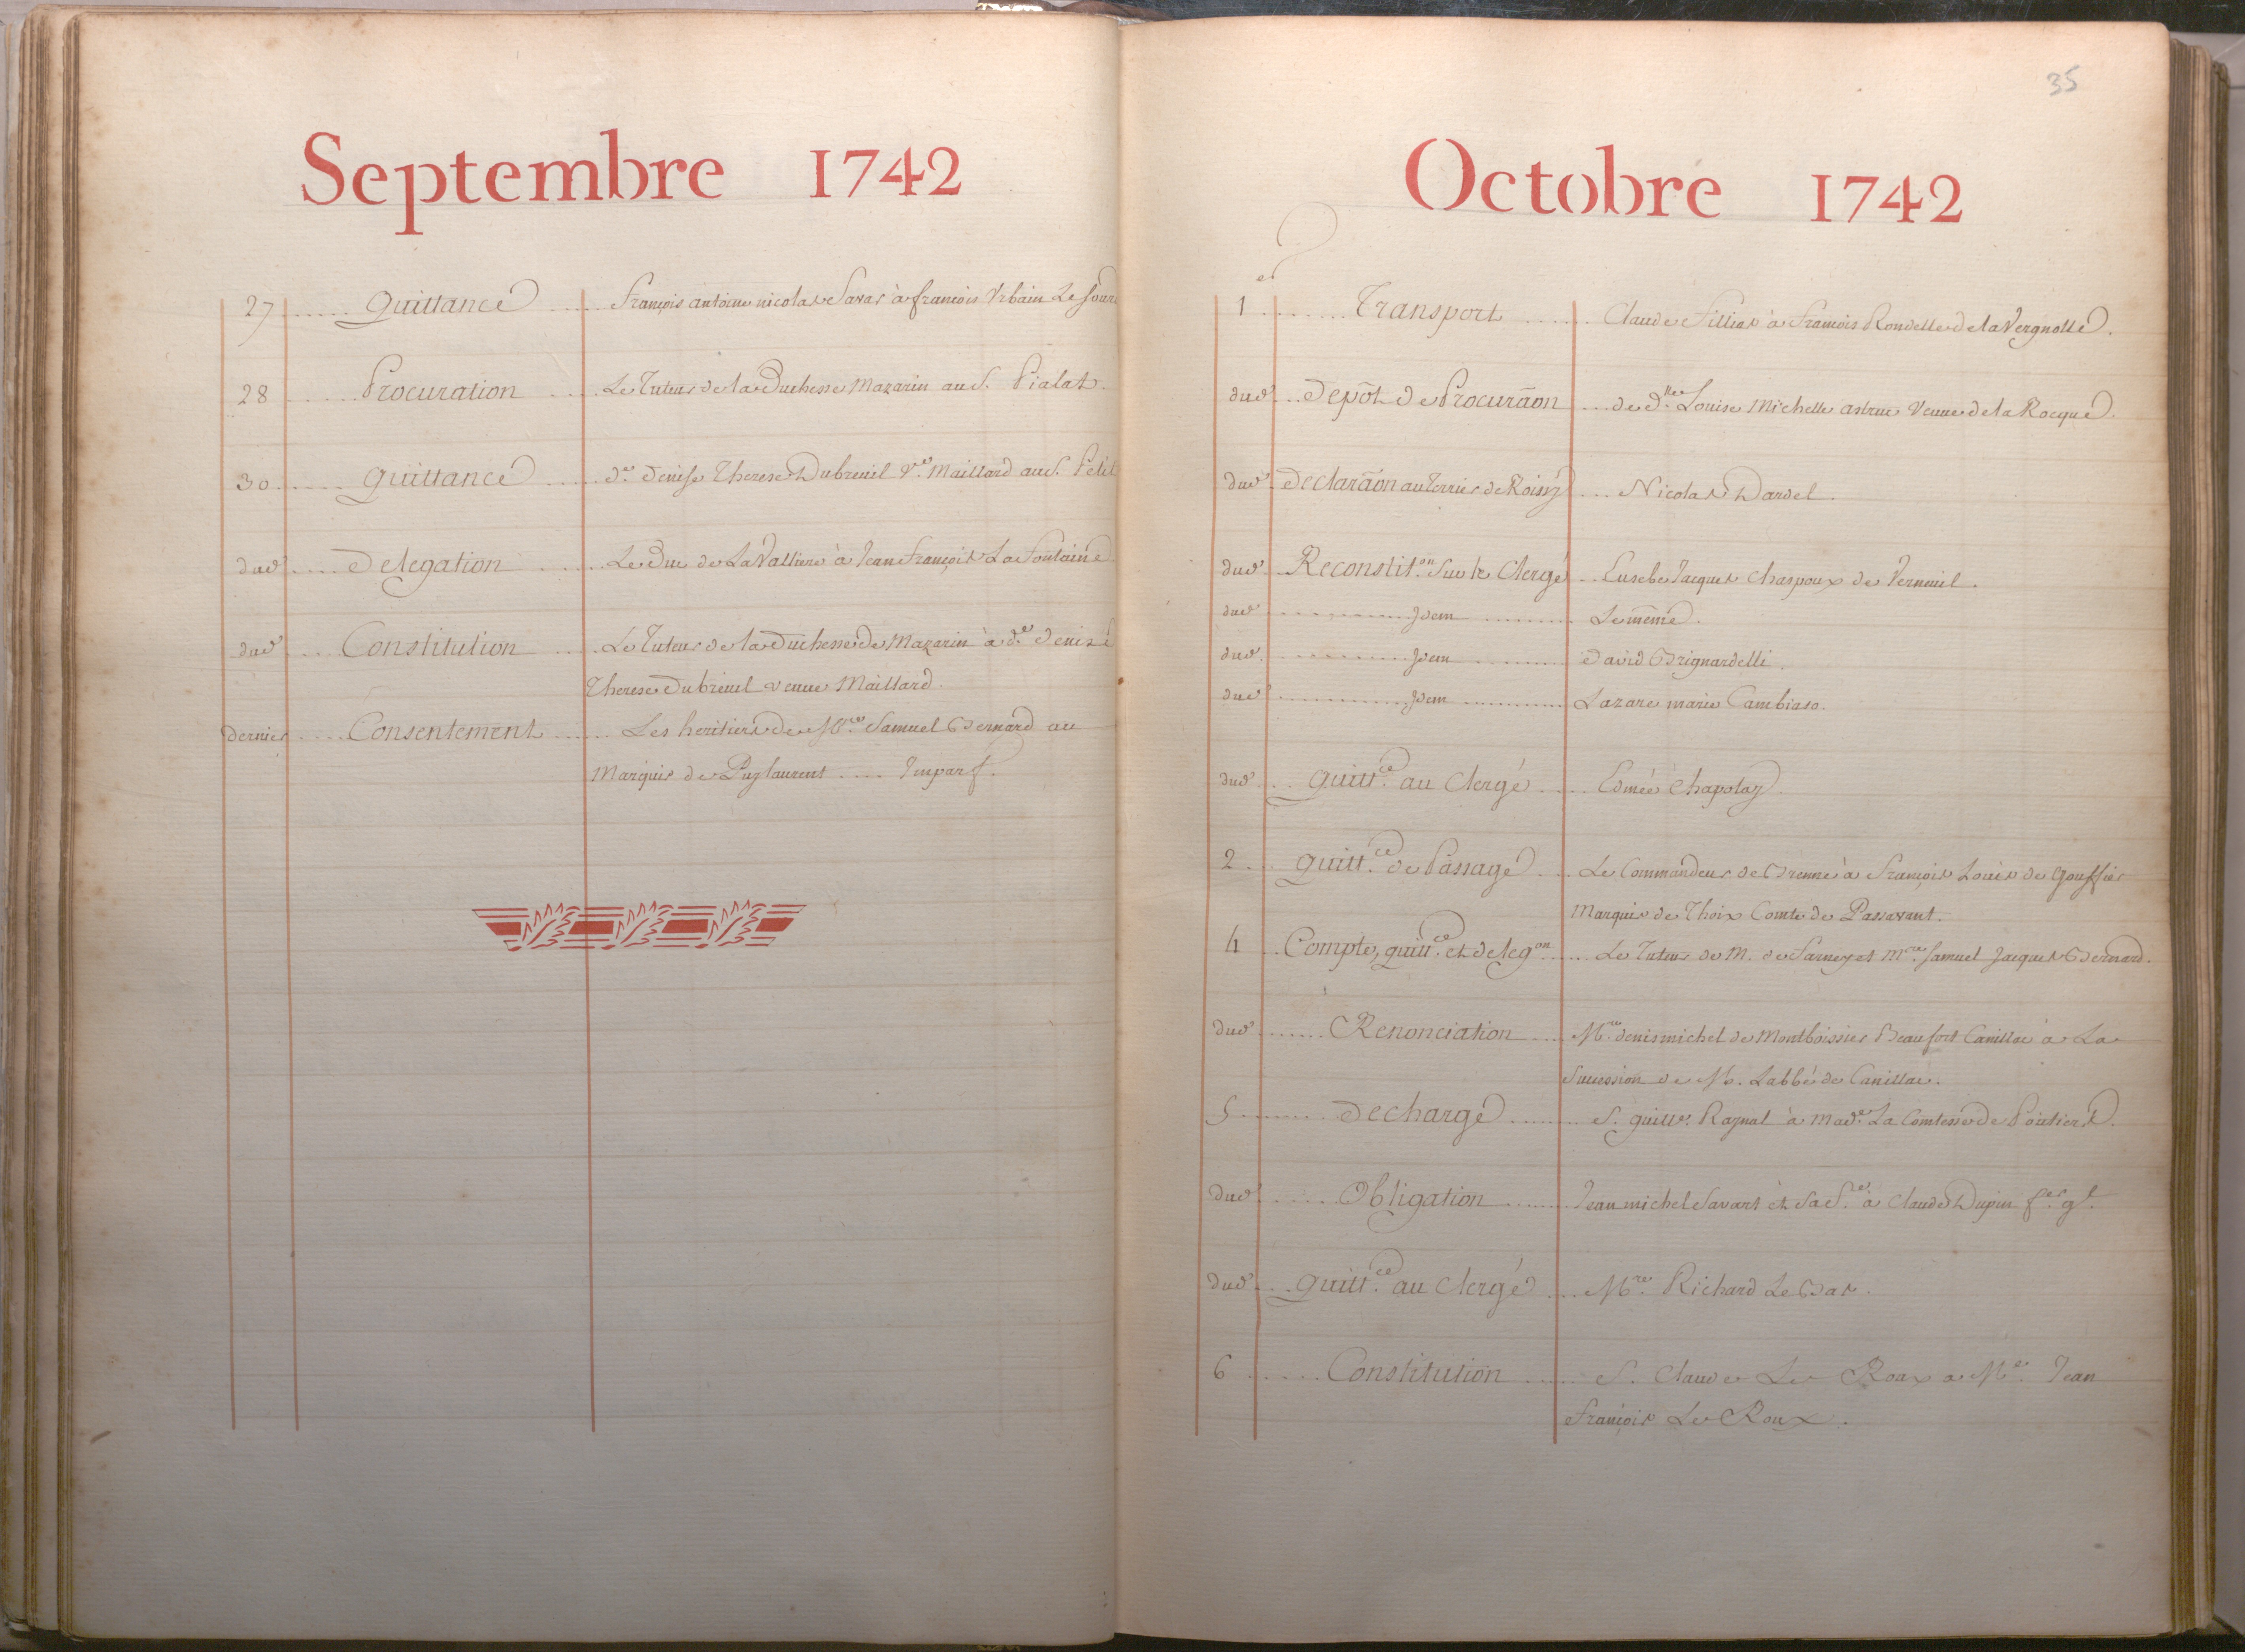 Septembre 1742
27 Quittance François antoine nicolas Savar à francois Urbain Le
28 Procuration Le Tuteur de la Duchesse Mazarin au S. Pialat.
30 Quittance d.e Denise Therese Dubreuil V.e Maillard au S. Petit
dud Delegation Le Duc de La Valliere à Jean François La Fontaine
dud Constitution Le Tuteur de la Duchesse de Mazarin à d.e Denise
Therese Dubreuil veuve Maillard.
dernier Consentement Les heritiers de M.re Samuel Bernard au
Marquis de Puylaurent .... Imparf.
35
Octobre 1742
1er Transport Claude Fillias à François Rondelle de la Vergnolle.
dud Depôt de Procurãon de d.lle Louise Michelle astruc Veuve de la Rocque.
dud Declarãon au Terrier de Roissy Nicolas Dardel.
dud. Reconstit.on Sur le Clergé Eusebe Jacques Chaspoux de Verneuil.
dud Idem Le même.
dud. Idem David Brignardelli.
dud Idem Lazare marie Cambiaso.
dud Quitt.ce au Clergé Edmée Chapotay.
2 Quitt.ce de Passage Le Commandeur de Brenne à François Louis de Gouffier
Marquis de Thoix Comte de Passavant.
4 Compte, quitt.ce et deleg.on Le Tuteur de M. de et M.re Samuel Jacques Bernard.
dud Renonciation M.re denis michel de Montboissier Beaufort Canillac à La
Succession de M. Labbé de Canillac.
5 Decharge S. Guill.e Raynal à Mad.e La Comtesse de Poitiers.
dud Obligation Jean michel Savart et Sa f.e à Claude Dupin f.er g.l
dud Quitt.ce au Clergé M.re Richard Le Bas.
6 Constitution S. Claude Le Roux a M.e Jean
François Le Roux.